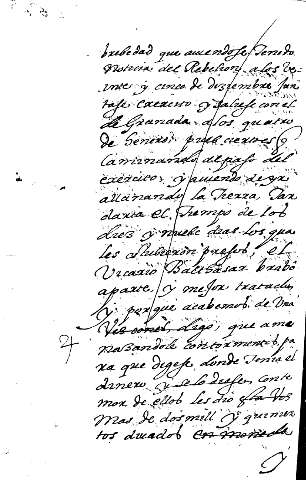 brebedad que auiendose tenido
noticia del Rebelion a los ve
inte y cinco de diziembre jun
tase exercito y saliese con el
de Granada a los quatro
de henero; pues ciertos y
caminando al paso del
exercito, y auiendo de yr
allanando la tierra Tar
daria el tiempo de los
diez y nuebe dias los qua
les stubieron presos, el
Vicario Baltasar brabo
aparte y mejor tratado,
y porque acabemos de una
Vez con el, digo, que ame
nasandole con tormentos pa
ra que digese donde tenia el
dinero y se lo diese, con te
mor de ellos les dio
mas de dos mill y quinien
tos ducados en moneda
y